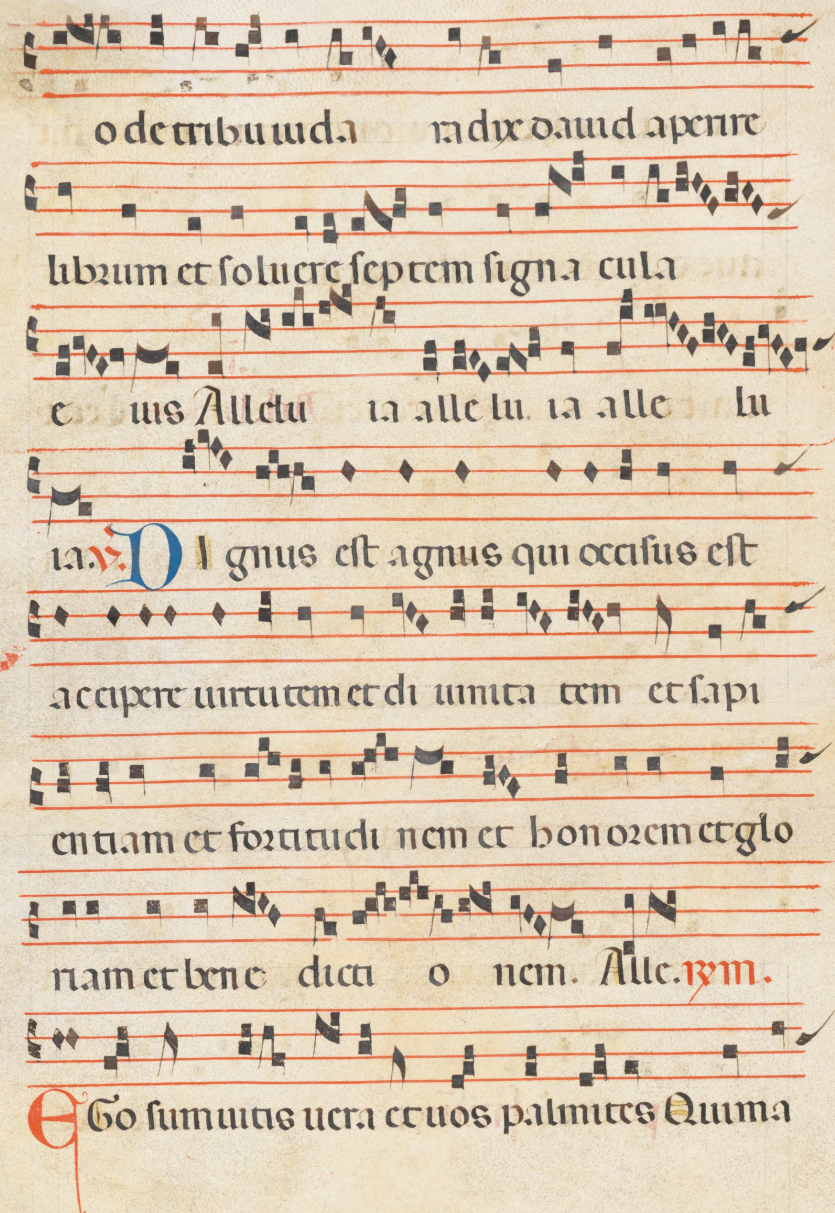 o de tribu iuda radix dauid aperire
librum et soluere septem signa cula
e ius Allelu ia alle lu ia alle lu
ia. V. DI gnus est agnus qui occisus est
accipere uirtutem et di uinita tem et sapi
entiam et fortitudi nem et honorem et glo
riam et bene dicti o nem. Alle. rm.
EGo sum uitis uera et uos palmites Qui ma